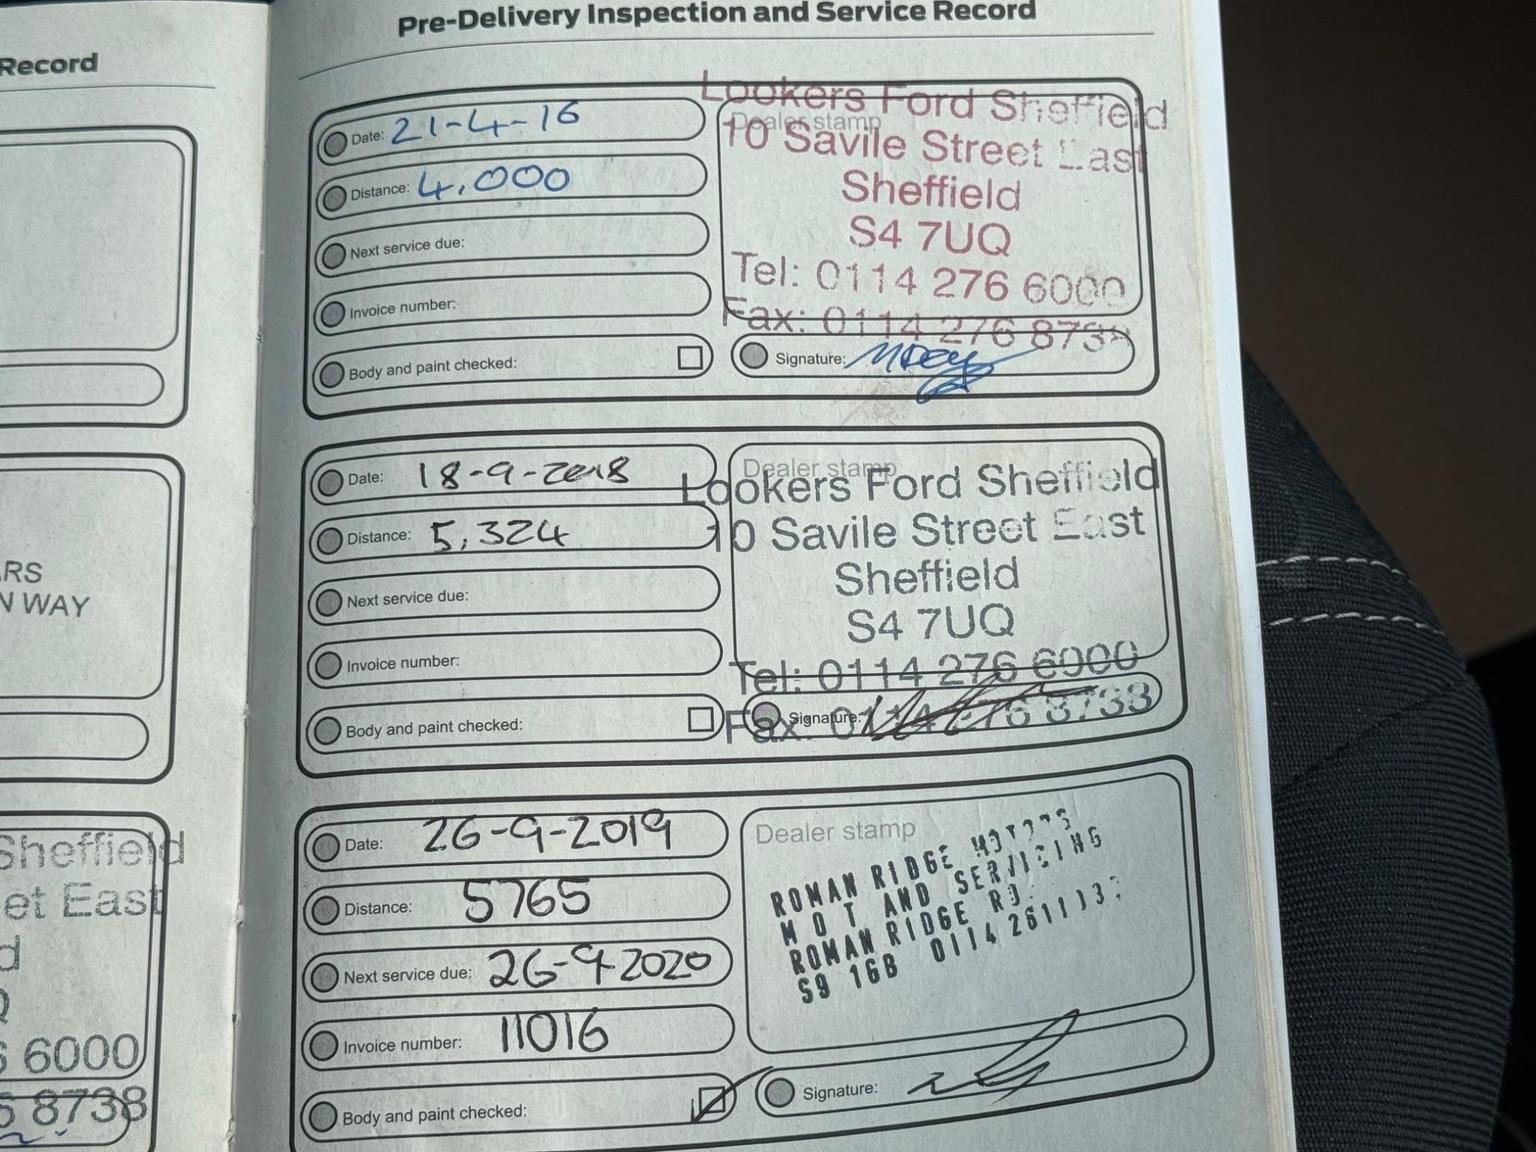 Record
ARS
N WAY
Sheffield
et East
d
Q
6 6000
6 8738
Pre-Delivery Inspection and Service Record
Date: 21-4-16
Distance: 4,000
Next service due:
Invoice number:
Body and paint checked:
Dealer stamp
Lookers Ford Sheffield
10 Savile Street East
Sheffield
S4 7UQ
Tel: 0114 276 6000
Fax: 0114 276 8738
Signature:
Date: 18-9-2018
Distance: 5,324
Next service due:
Invoice number:
Body and paint checked:
Dealer stamp
Lookers Ford Sheffield
10 Savile Street East
Sheffield
S4 7UQ
Tel: 0114 276 6000
Fax: 0114 276 8738
Signature:
Date: 26-9-2019
Distance: 5765
Next service due: 26-9-2020
Invoice number: 11016
Body and paint checked:
Dealer stamp
ROMAN RIDGE MOTORS
MOT AND SERVICING
ROMAN RIDGE RD.
S9 1GB 0114
Signature: